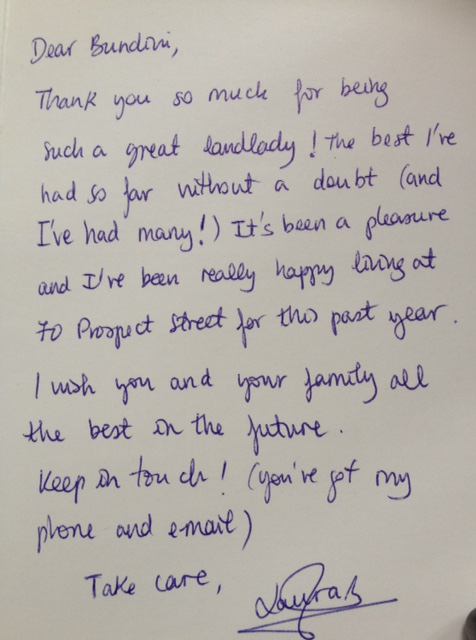 Dear Bundini,
Thank you so much for being
such a great landlady! The best I've
had so far without a doubt (and
I've had many!) It's been a pleasure
and I've been really happy living at
70 Prospect street for this past year.
I wish you and your family all
the best in the future.
Keep in touch! (you've got my
phone and e-mail)
Take care,